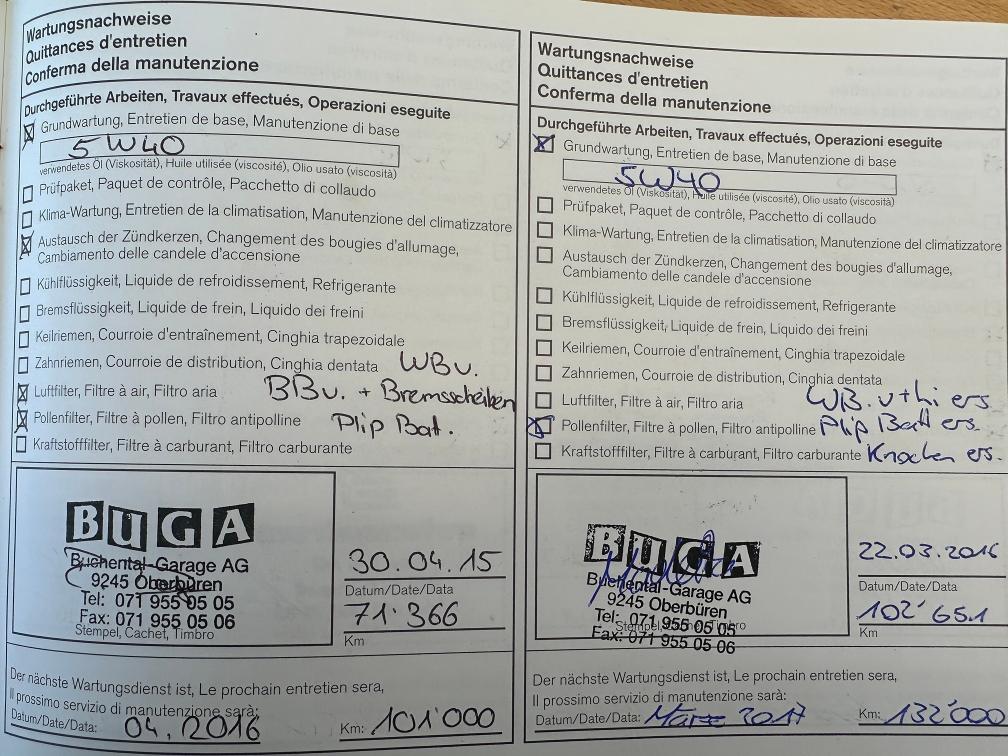 Wartungsnachweise
Quittances d'entretien
Conferma della manutenzione
Durchgeführte Arbeiten, Travaux effectués, Operazioni eseguite
Grundwartung, Entretien de base, Manutenzione di base
5W40
verwendetes Öl (Viskosität), Huile utilisée (viscosité), Olio usato (viscosità)
Prüfpaket, Paquet de contrôle, Pacchetto di collaudo
Klima-Wartung, Entretien de la climatisation, Manutenzione del climatizzatore
Austausch der Zündkerzen, Changement des bougies d'allumage,
Cambiamento delle candele d'accensione
Kühlflüssigkeit, Liquide de refroidissement, Refrigerante
Bremsflüssigkeit, Liquide de frein, Liquido dei freini
Keilriemen, Courroie d'entraînement, Cinghia trapezoidale
Zahnriemen, Courroie de distribution, Cinghia dentata WBv.
Luftfilter, Filtre à air, Filtro aria BBv. + Bremsscheiben
Pollenfilter, Filtre à pollen, Filtro antipolline Plip Bat.
Kraftstofffilter, Filtre à carburant, Filtro carburante
BUGA
Buchental-Garage AG
9245 Oberbüren
Tel: 071 955 05 05
Fax: 071 955 05 06
Stempel, Cachet, Timbro
30.04.15
Datum/Date/Data
71'366
Km
Der nächste Wartungsdienst ist, Le prochain entretien sera,
Il prossimo servizio di manutenzione sarà:
Datum/Date/Data: 04.2016 Km: 101'000
Wartungsnachweise
Quittances d'entretien
Conferma della manutenzione
Durchgeführte Arbeiten, Travaux effectués, Operazioni eseguite
Grundwartung, Entretien de base, Manutenzione di base
5W40
verwendetes Öl (Viskosität), Huile utilisée (viscosité), Olio usato (viscosità)
Prüfpaket, Paquet de contrôle, Pacchetto di collaudo
Klima-Wartung, Entretien de la climatisation, Manutenzione del climatizzatore
Austausch der Zündkerzen, Changement des bougies d'allumage,
Cambiamento delle candele d'accensione
Kühlflüssigkeit, Liquide de refroidissement, Refrigerante
Bremsflüssigkeit, Liquide de frein, Liquido dei freini
Keilriemen, Courroie d'entraînement, Cinghia trapezoidale
Zahnriemen, Courroie de distribution, Cinghia dentata
Luftfilter, Filtre à air, Filtro aria WB. v+hi ers
Pollenfilter, Filtre à pollen, Filtro antipolline Plip Batt ers.
Kraftstofffilter, Filtre à carburant, Filtro carburante Knochen ers.
BUGA
Buchental-Garage AG
9245 Oberbüren
Tel: 071 955 05 05
Stempel, Cachet, Timbro
Fax: 071 955 05 06
22.03.2016
Datum/Date/Data
102'651
Km
Der nächste Wartungsdienst ist, Le prochain entretien sera,
Il prossimo servizio di manutenzione sarà:
Datum/Date/Data: März 2017 Km: 132'000